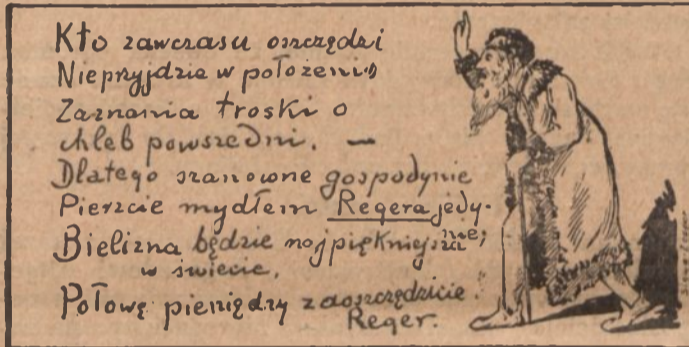 Kto zawczasu oszczędzi
Nieprzyjdzie w położeniu
Zaznania troski o
chleb powszedni. —
Dlatego szanowne gospodynie
Pierzcie mydłem Regera jedy-
nie;
Bielizna będzie najpiękniejsza
w świecie,
Połowę pieniędzy zaoszczędzicie.
Reger.